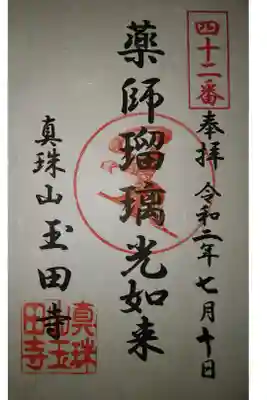 四十二番
奉拝 令和二年七月十日
薬師瑠璃光如来
真珠山玉田寺
真珠山玉田寺